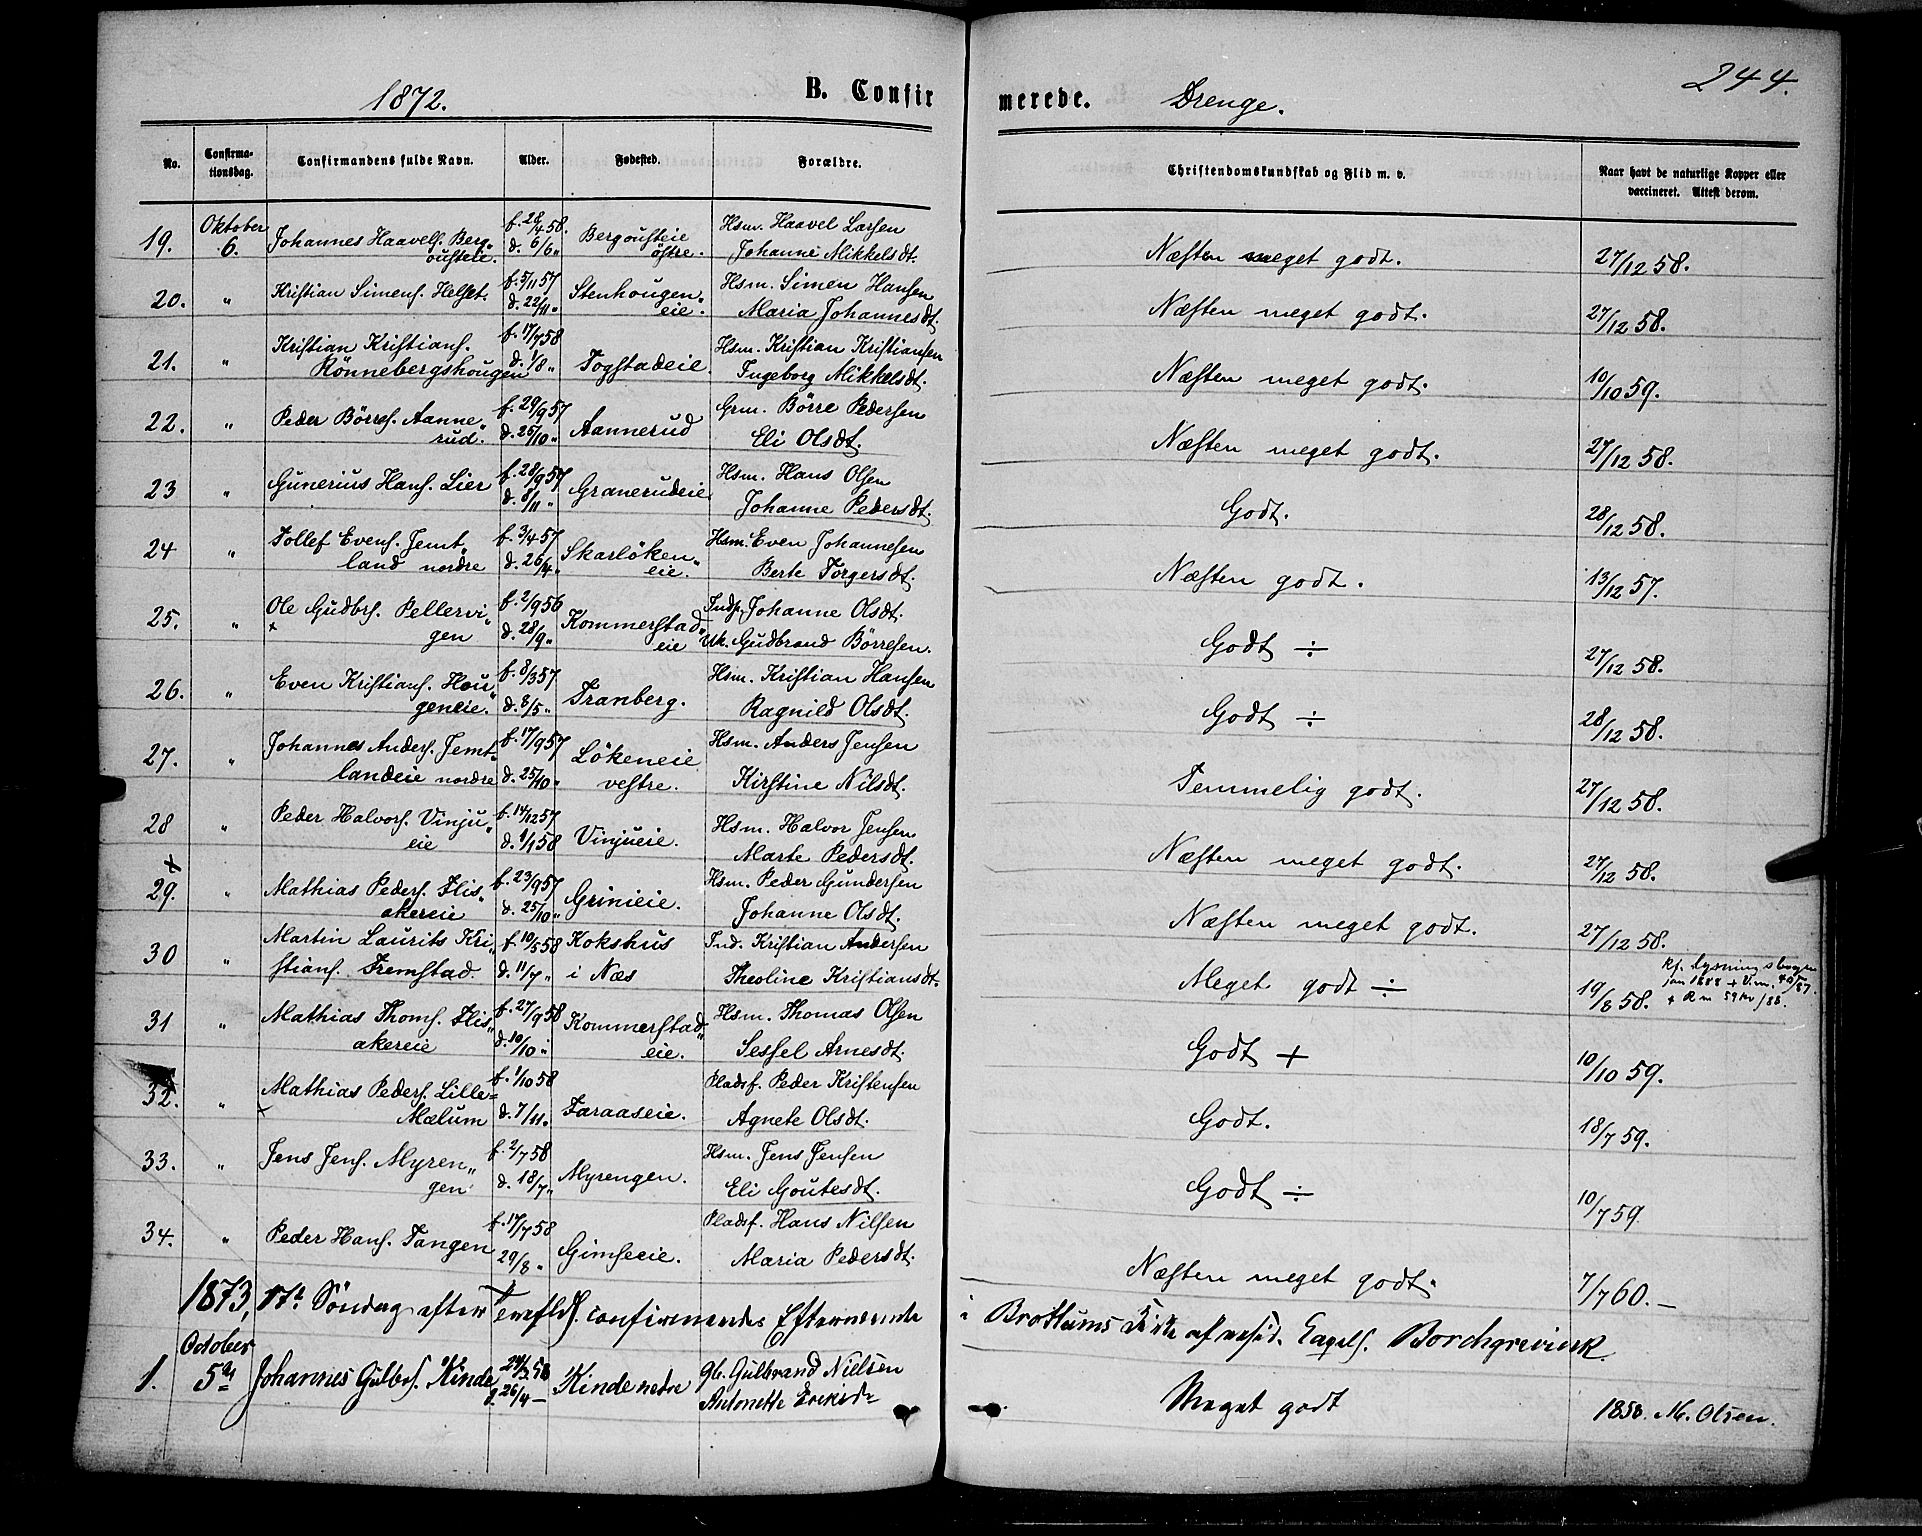 1872. B. Confirmerede. Drenge. 244.
No. Confirmationsdag. Confirmandens fulde Navn. Alder. Fødested. Forældre. Christendomskundskab og Flid m. v. Naar havt de naturlige Kopper eller vaccineret. Attest derom.
19. Oktober 6. Johannes Haavels. Berg„ f. 28/4 58. Bergousteie Hsm. Haavel Larsen Næsten meget godt. 27/12 58.
ousteie. d. 6/6 „ östre. Johanne Mikkelsdt.
20. „ Kristian Simens. Helset. f. 5/11 57 Stenhougen„ Hsm. Simen Hansen Næsten meget godt. 27/12 58.
d. 22/11 „ eie. Maria Johannesdt.
21. „ Kristian Kristians. f. 17/7 58 Togstadeie Hsm. Kristian Kristiansen Næsten meget godt. 10/10 59.
Rönnebergshougen d. 1/8 „ Ingeborg Mikkelsdt.
22. „ Peder Börres. Aanne„ f. 29/9 57 Aannerud Grm. Börre Pedersen Næsten meget godt. 27/12 58.
rud. d. 25/10 „ Eli Olsdt.
23 „ Gunerius Hans. Lier f. 28/9 57 Granerudeie Hsm. Hans Olsen Godt. 28/12 58.
d. 8/11 „ Johanne Pedersdt.
24 „ Tollef Evens. Jemt„ f. 3/4 57 Skarlöken„ Hsm. Even Johannesen Næsten godt. 13/12 57.
land nordre d. 26/4 „ eie. Berte Torgersdt.
25. „ Ole Gudbrs. Pellervi„ f. 2/9 56 Kommerstad„ Inds. Johanne Olsdt. Godt ÷ 27/12 58.
+ gen d. 28/9 „ eie Uk. Gudbrand Börresen.
26. „ Even Kristians. Hou„ f. 8/3 57 Tranberg. Hsm. Kristian Hansen Godt ÷ 28/12 58.
geneie. d. 8/5 „ Ragnild Olsdt.
27. „ Johannes Anders. Jemt„ f. 17/9 57 Lökeneie Hsm. Anders Jensen Temmelig godt. 27/12 58.
landeie nordre d. 25/10 „ vestre. Kirstine Nilsdt.
28 „ Peder Halvors. Vinju„ f. 14/12 57 Vinjueie. Hsm. Halvor Jensen Næsten meget godt. 27/12 58.
eie d. 1/1 58 Marte Pedersdt.
+
29. „ Mathias Peders. Flis„ f. 23/9 57 Grinieie. Hsm. Peder Gundersen Næsten meget godt. 27/12 58.
akereie d. 25/10 „ Johanne Olsdt.
30 „ Martin Laurits Kri„ f. 10/5 58 Kokshus Ind. Kristian Andersen Meget godt ÷ 19/8 58.
stians. Fremstad. d. 11/7 „ i Næs Theoline Kristiansdt.
kf. lysningsbogen
jan 1888 + V.m. 40/87.
+ R m 59 kv /88.
31 „ Mathias Thoms. Flis„ f. 27/9 58 Kommerstad„ Hsm. Thomas Olsen Godt + 10/10 59.
akereie d. 10/10 „ eie. Sessel Arnesdt.
32. „ Mathias Peders. Lille= f. 1/10 58 Faraaseie. Pladsf. Peder Kristensen Godt. 18/7 59.
+ Mælum d. 7/11. Agnete Olsdt.
33. „ Jens Jens. Myren„ f. 2/7 58 Myrengen. Hsm. Jens Jensen Godt ÷ 10/7 59.
gen d. 18/7 „ Eli Goutesdt.
34. „ Peder Hans. Tangen f. 17/7 58 Gimseeie. Pladsf. Hans Nilsen Næsten meget godt. 7/7 60.—
29/8 „ Maria Pedersdt.
1873, 17de Söndag efter Trefldh. confirmeredes Efternævnte i Brottums Kirke af resid. Capels. Borchgrevink.
1. October 5te Johannes Gulbrs. Kinde 24/3 58 Kinde nedre Gb. Gulbrand Nielsen Meget godt 1858. M. Olsen.
d. 26/4 — Antonette Eriksdr